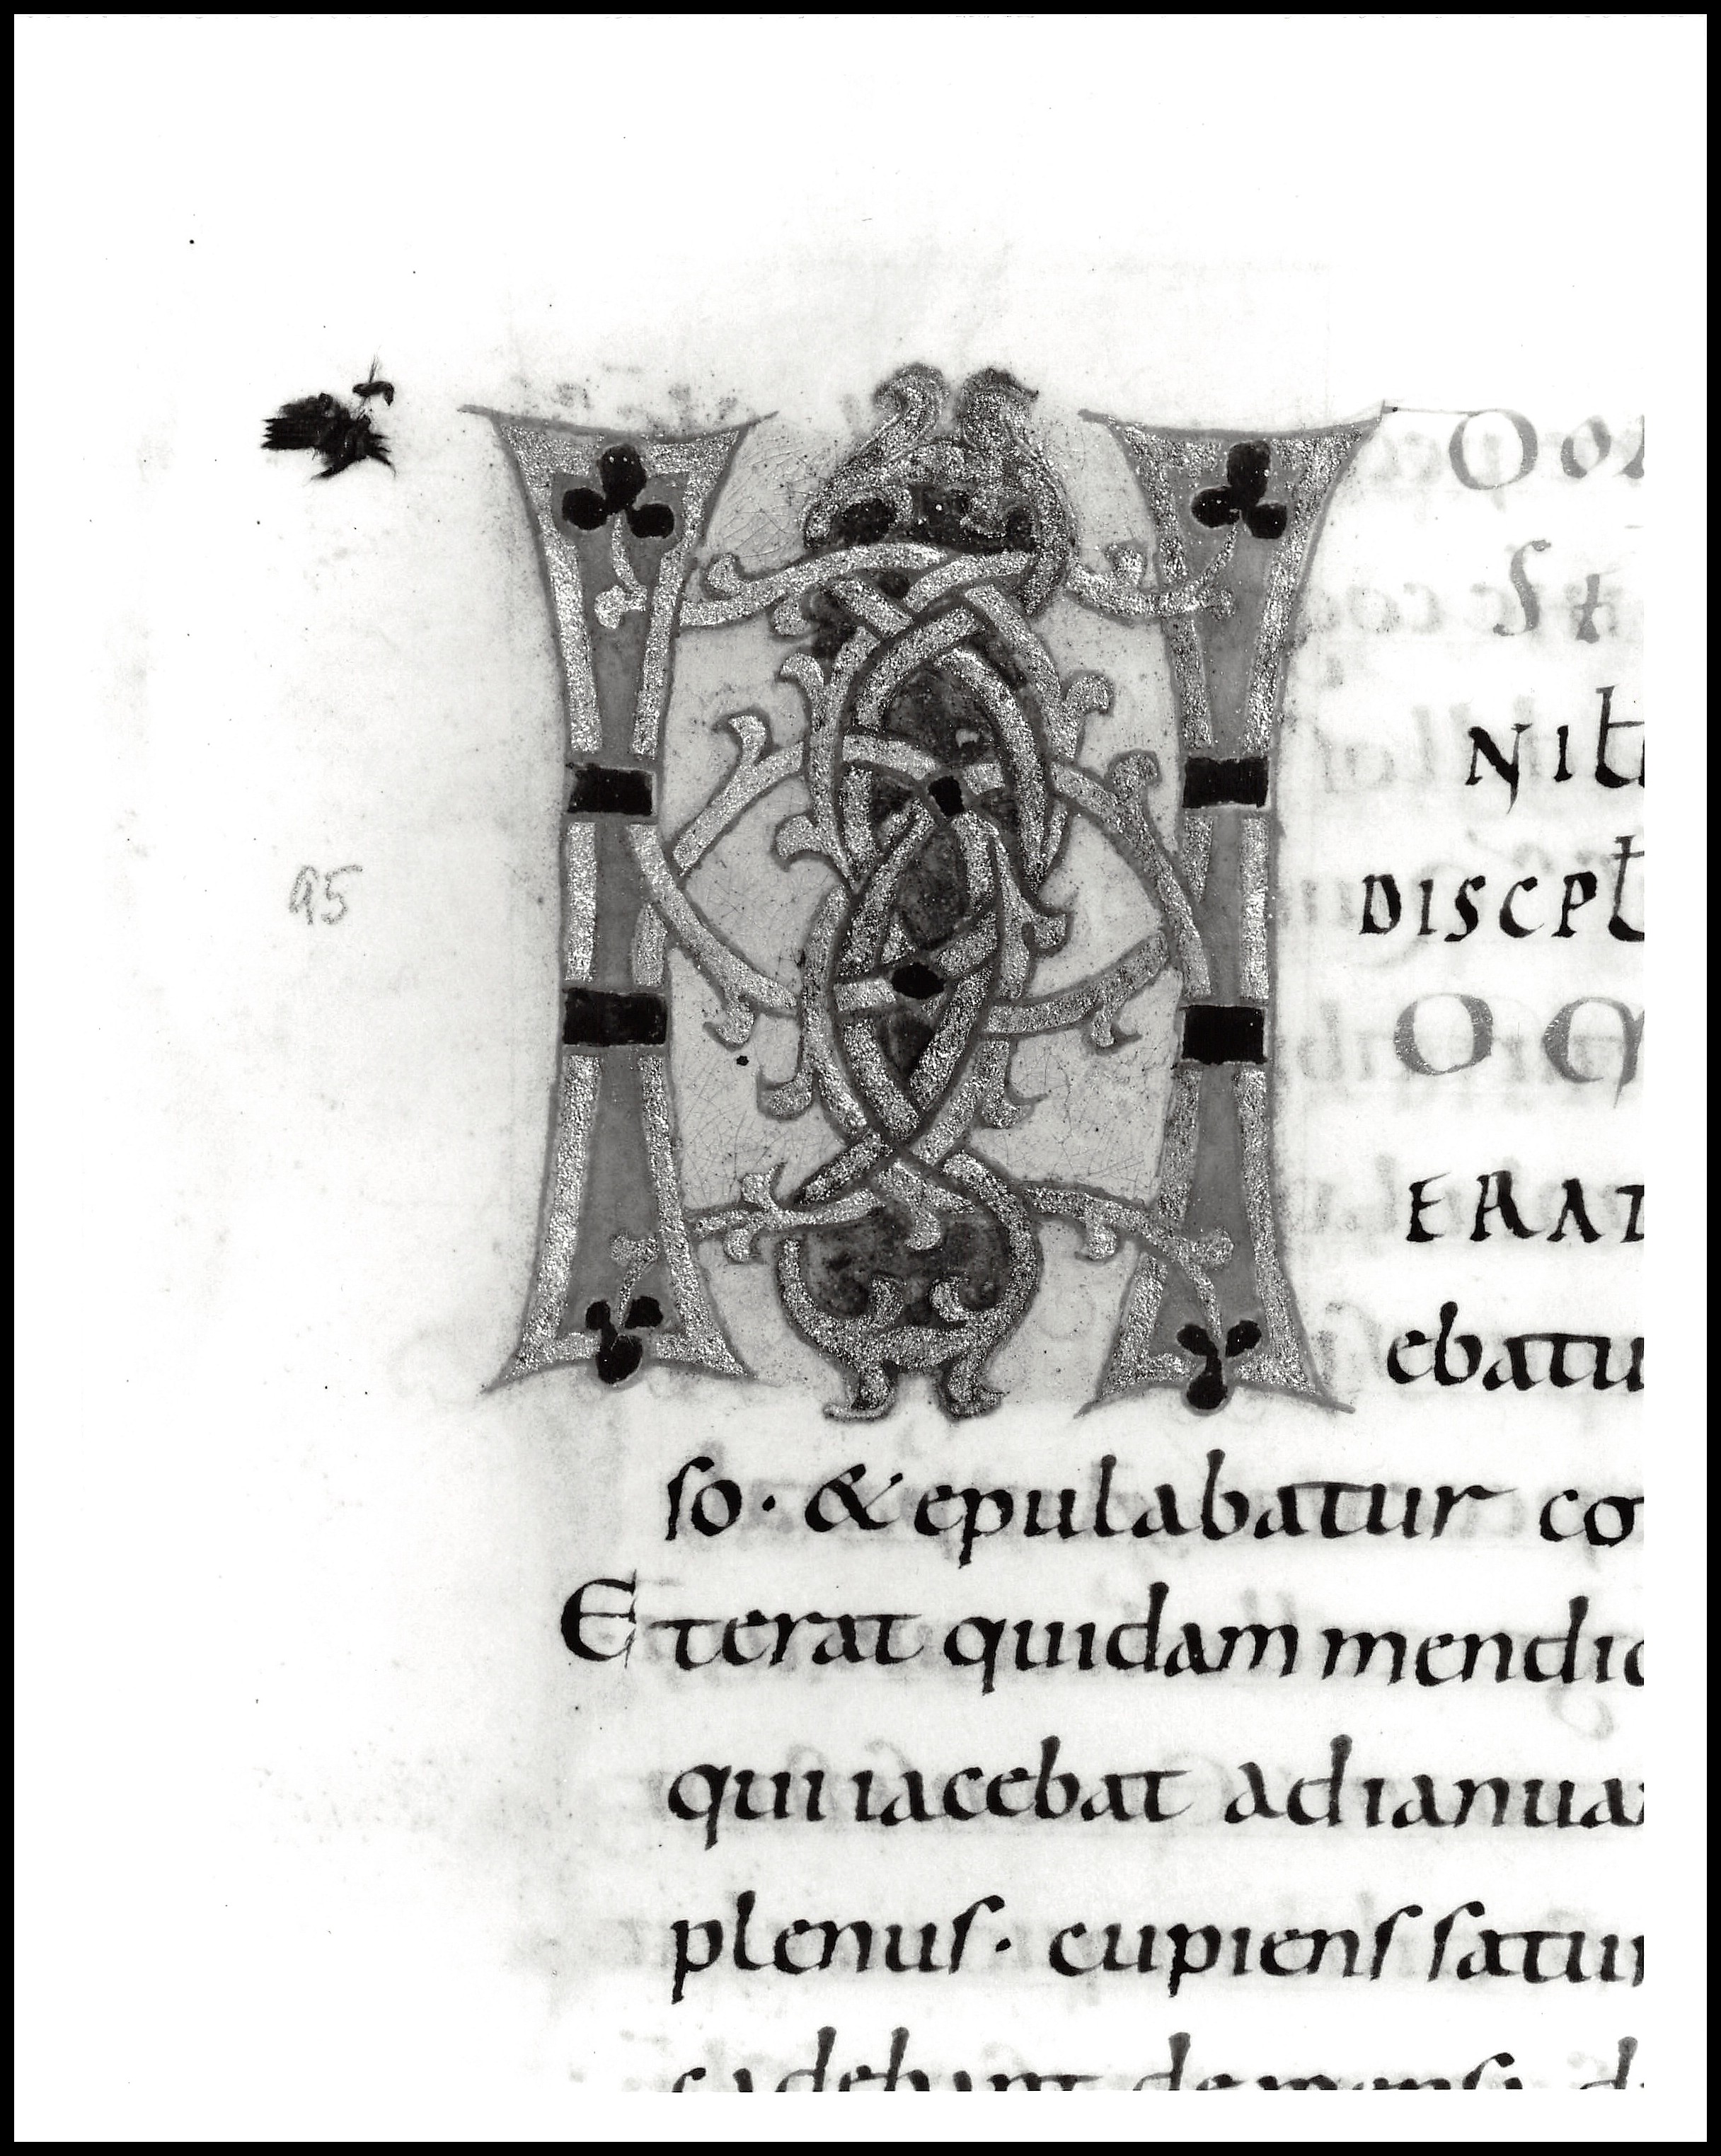 H
NIT
DISCPL
95
O O
ERAT
ebatu
so· & epulabatur co
Et erat quidam mendic
qui iacebat ad ianuam
plenus· cupiens satur
cadebant de mensa d